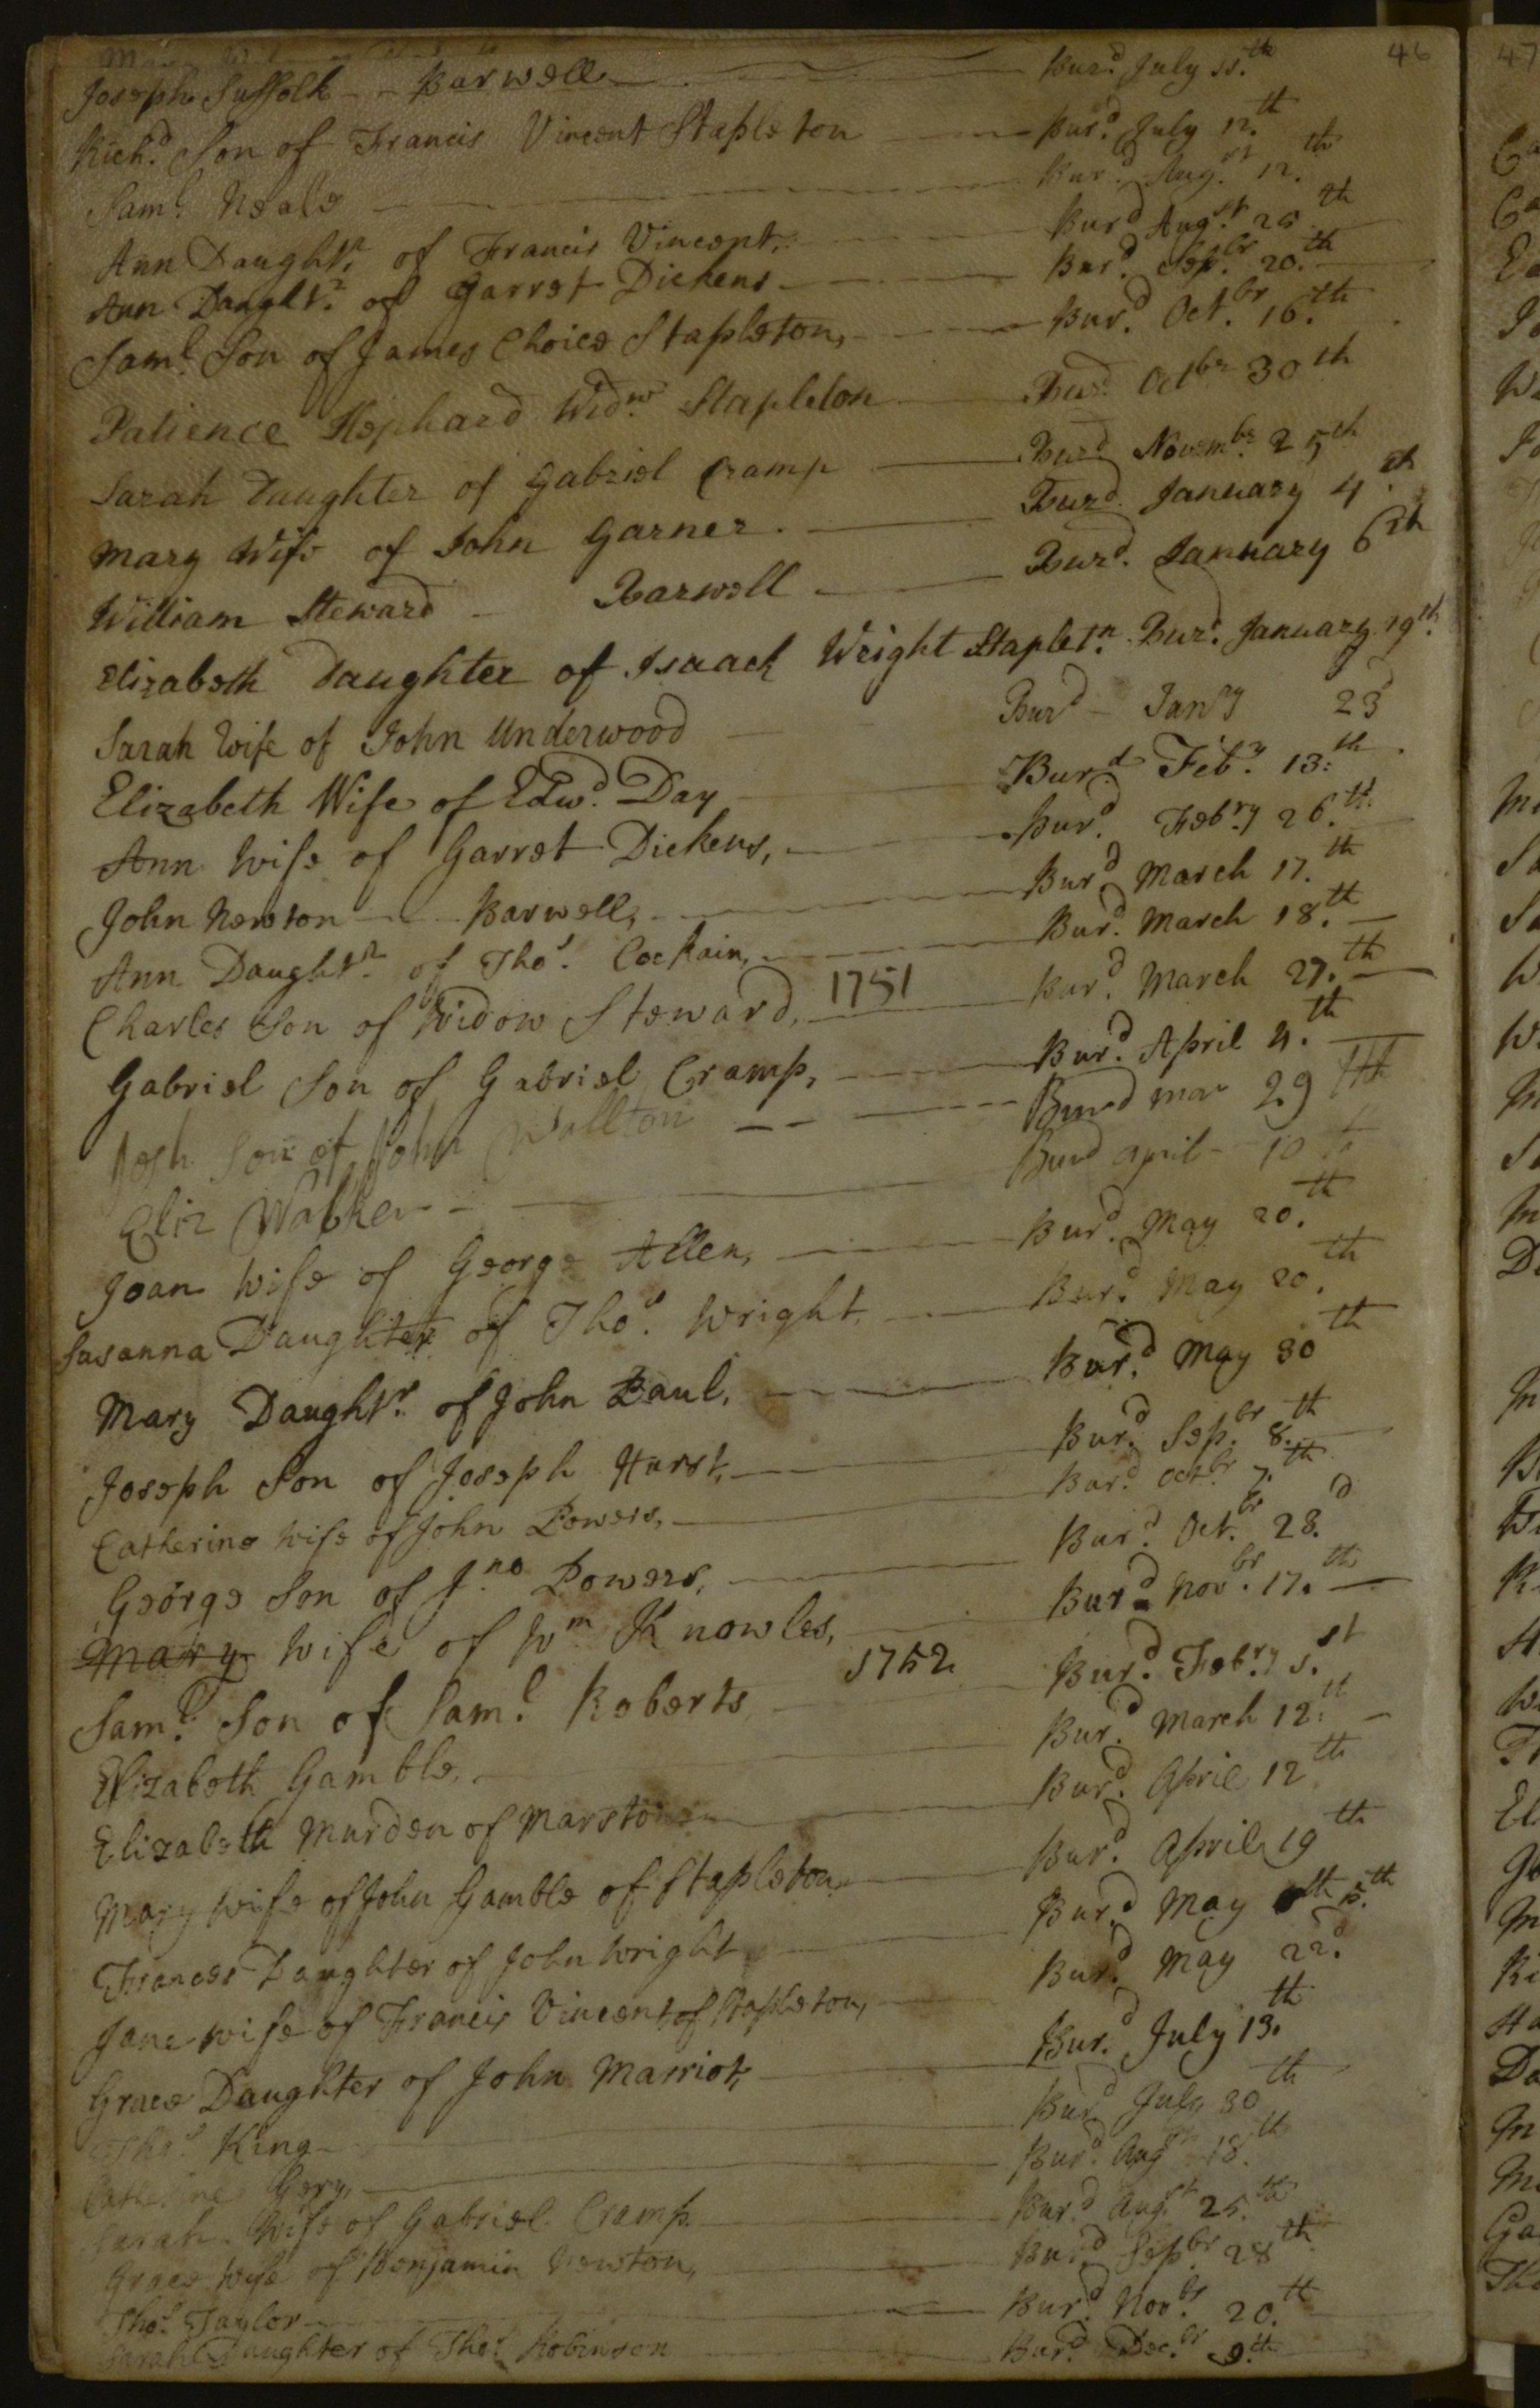 46
Joseph Suffolk - - Barwell Bur.d July 11.th
Rich.d Son of Francis Vincent Stapleton Bur.d July 12.th
Sam.l Neale Bur.d Aug.st 12.th
Ann Daught.r of Francis Vincent, Bur.d Aug.st 25.th
Ann Daught.r of Garret Dickens Bur.d Sep.br 20.th
Sam.l Son of James Choice Stapleton, Bur.d Oct.br 16.th
Patience Shephard Wid.w Stapleton Bur.d Octbr 30th
Sarah Daughter of Gabriel Cramp Burd Novem.br 25th
Mary Wife of John Garner. Burd January 4.th
William Steward - Barwell Bur.d January 6th
Elizabeth Daughter of Isaack Wright Staplet.n Bur.d January 19th.
Sarah Wife of John Underwood Burd - Janry 23d
Elizabeth Wife of Edw.d Day Bur.d Feb.y 13.th
Ann Wife of Garret Dickens, Bur.d Feb.ry 26.th
John Newton - Barwell, Bur.d March 17.th
Ann Daught.r of Tho.s Cockain, Bur.d March 18.th
Charles Son of Widow Steward, 1751 Bur.d March 27.th
Gabriel Son of Gabriel Cramp, Bur.d April 4.th
Josh Son of John Wallton Burd mar 29th
Eliz Walker Burd april 10th
Joan Wife of George Allen, Bur.d May 20.th
Susanna Daughter of Tho.s Wright, Bur.d May 20.th
Mary Daught.r of John Paul, Bur.d May 30th
Joseph Son of Joseph Hurst, Bur.d Sep.br 8.th
Catherine Wife of John Powers, Bur.d Oct.br 7.th
George Son of J.no Powers, Bur.d Oct.br 23.d
Mary Wife of Wm Knowles, Bur.d Nov.br 17.th
Sam.l Son of Sam.l Roberts 1752 Bur.d Feb.ry 1.st
Elizabeth Gamble, Bur.d March 12.th
Elizabeth Murden of Marston Bur.d April 12th
Mary Wife of John Gamble of Stapleton, Bur.d April 19th
Frances Daughter of John Wright Bur.d May th 5.th
Jane wife of Francis Vincent of Stapleton, Bur.d May 22d.
Grace Daughter of John Marriot, Bur.d July 13.th
Tho.s King Bur.d July 30th
Catherine Gery, Bur.d Aug.st 18.th
Sarah Wife of Gabriel Cramp Bur.d Aug.st 25.th
Grace Wife of Benjamin Newton, Bur.d Sep.br 28th
Tho.s Taylor Bur.d Nov.br 20.th
Sarah Daughter of Tho.s Robinson Bur.d Dec.br 9.th